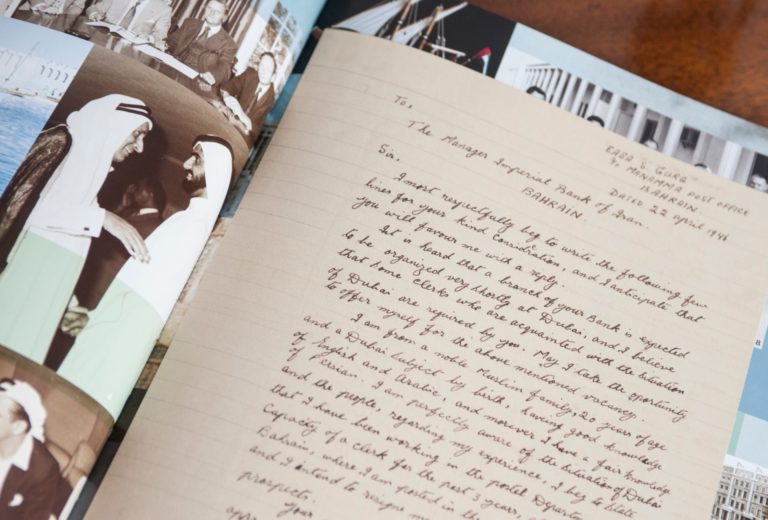 To,
EASA S. GURG
C/o MANAMMA POST OFFICE
BAHRAIN.
DATED 22 april 1946
The Manager Imperial Bank of Iran.
BAHRAIN.
Sir,
I most respectfully beg to write the following few
lines for your kind considration, and I anticipate that
you will favour me with a reply.
It is heard that a branch of your Bank is expected
to be organized very shortly at Dubai, and I believe
that some clerks who are acquainted with the situation
of Dubai are required by you. May I take the oportunity
to offer myself for the above mentioned vacancy.
I am from a noble Muslim family, 20 years of age
and a Dubai subject by birth, having good knowledge
of English and Arabic, and morever I have a fair knowledge
of Persian. I am perfectly aware of the situation of Dubai
and the people, regarding my experience, I beg to state
that I have been working in the postel Depart
Capacity of a clerk for the past 3 years,
Bahrain, where I am posted in the
and I intend to resign my
prospects.
Your